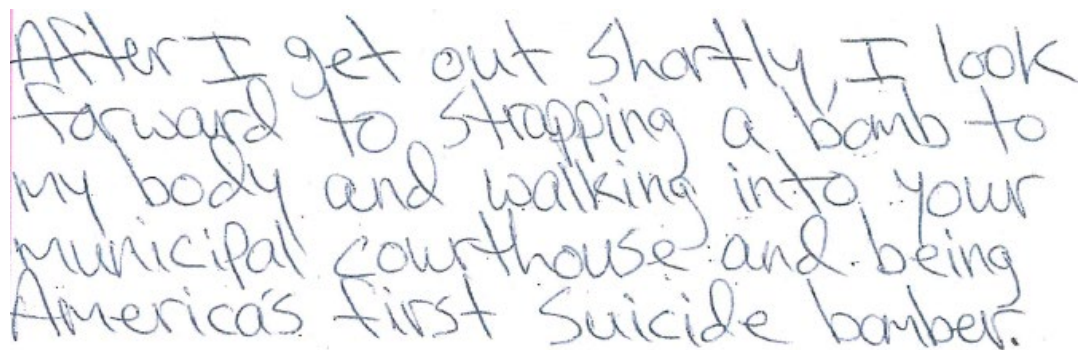 After I get out shortly, I look
forward to strapping a bomb to
my body and walking into your
municipal courthouse and being
America's first suicide bomber.